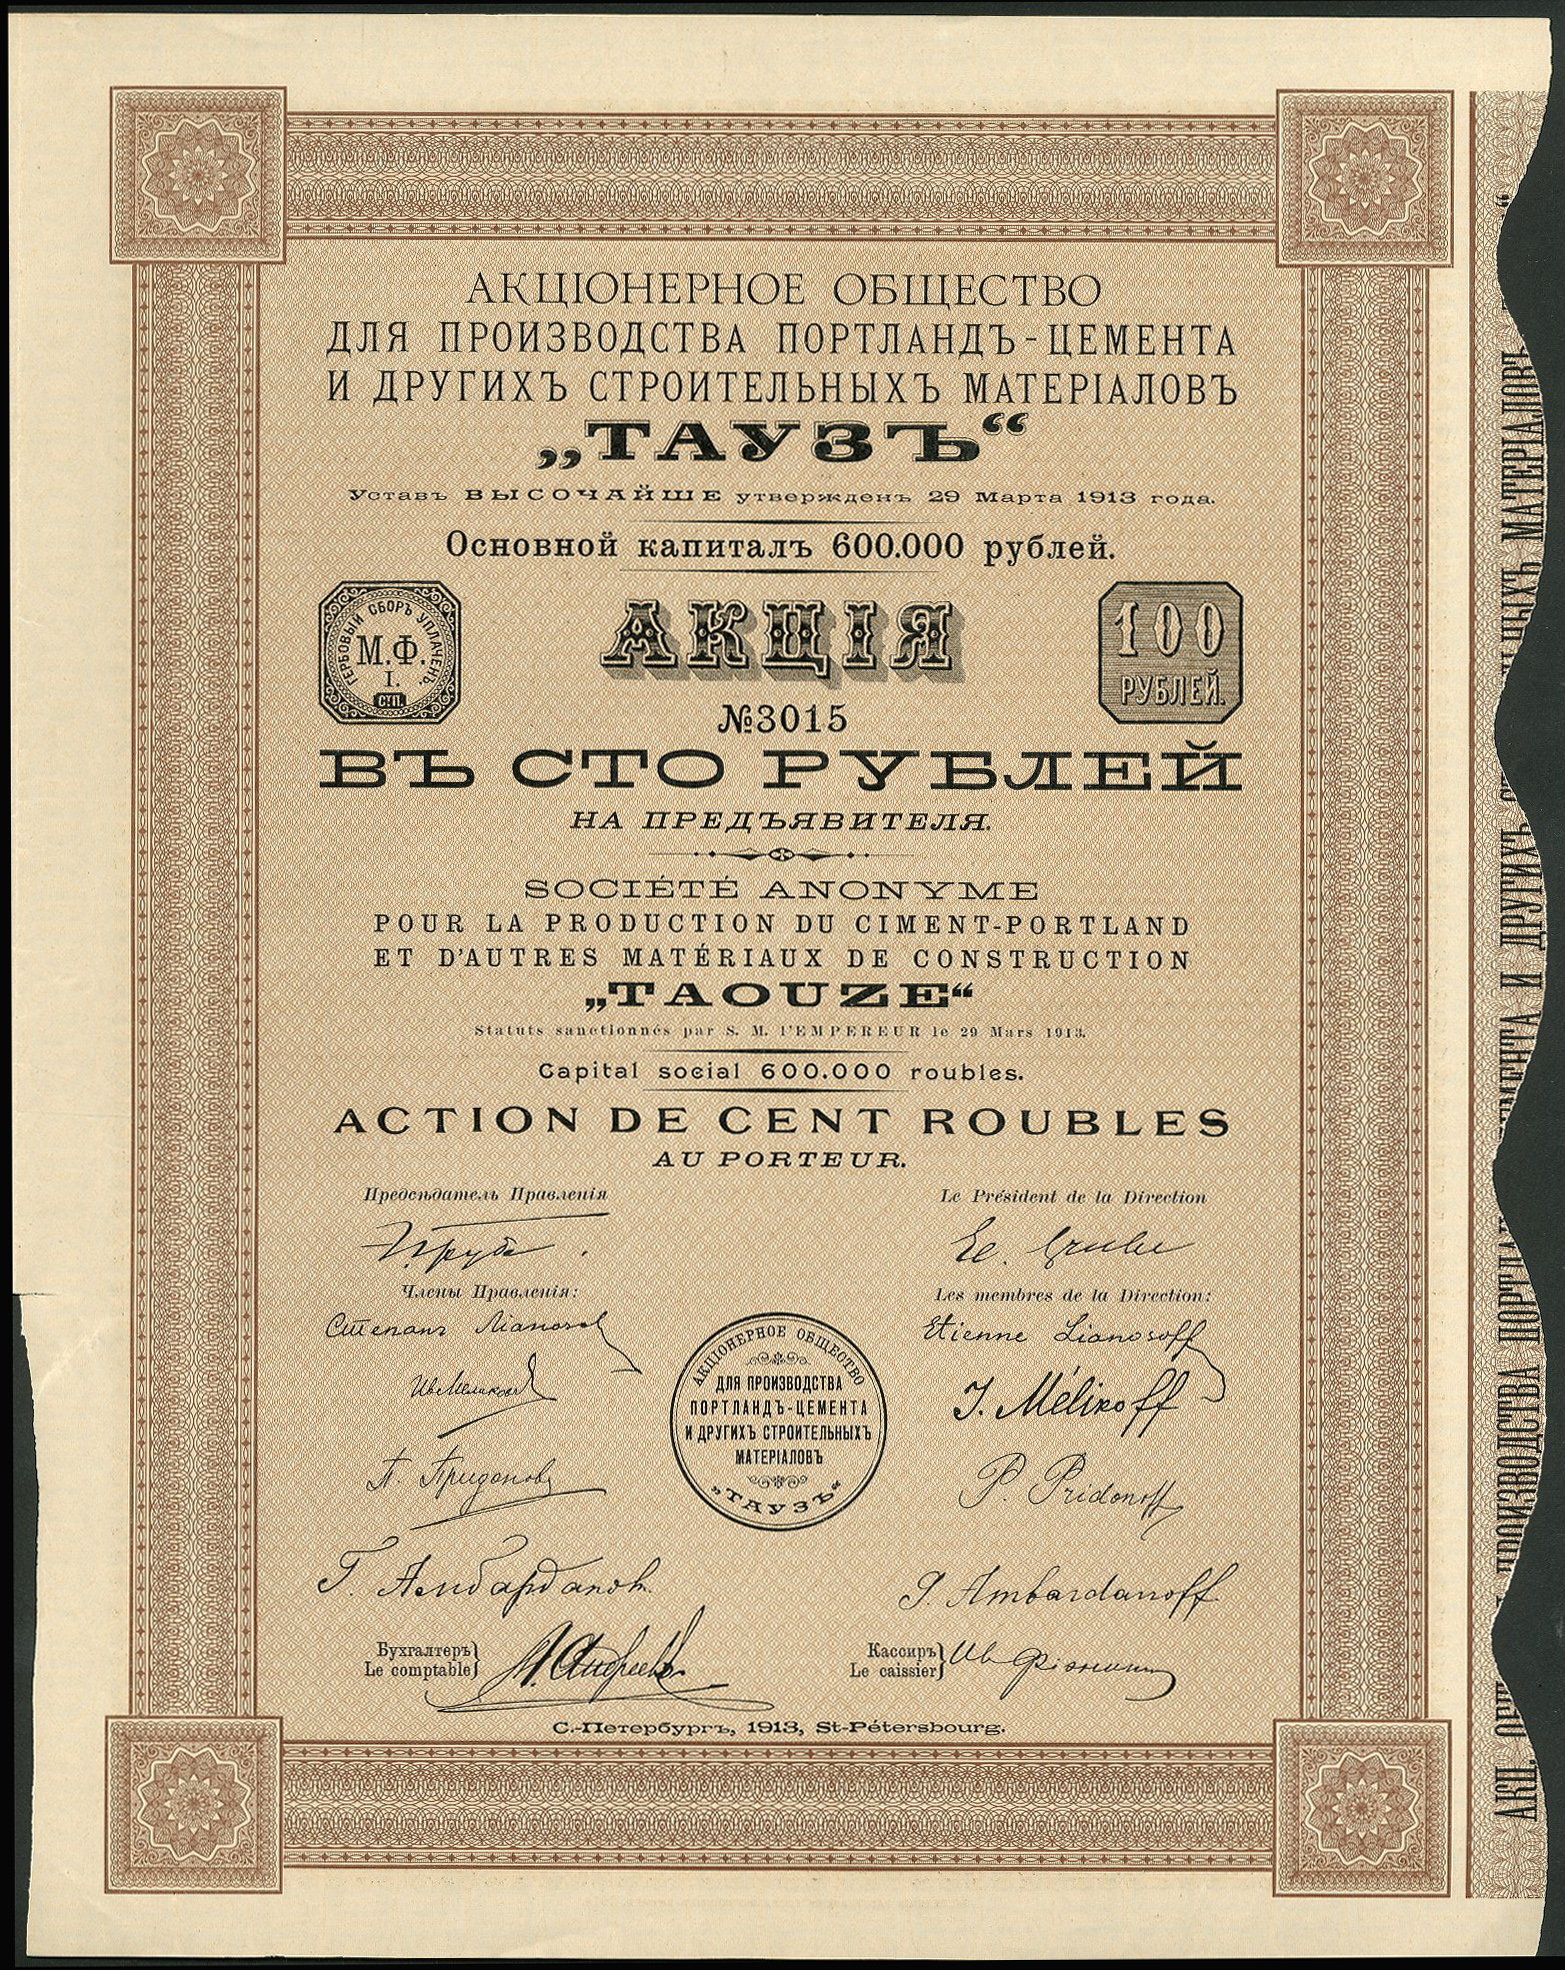 АКЦІОНЕРНОЕ ОБЩЕСТВО
ДЛЯ ПРОИЗВОДСТВА ПОРТЛАНДЪ-ЦЕМЕНТА
И ДРУГИХЪ СТРОИТЕЛЬНЫХЪ МАТЕРІАЛОВЪ
„ТАУЗЪ“
Уставъ ВЫСОЧАЙШЕ утвержденъ 29 Марта 1913 года.
Основной капиталъ 600.000 рублей.
ГЕРБОВЫЙ СБОРЪ УПЛАЧЕНЪ.
М.Ф.
I.
С.П.
АКЦІЯ
100
РУБЛЕЙ.
№3015
ВЪ СТО РУБЛЕЙ
НА ПРЕДЪЯВИТЕЛЯ.
SOCIÉTÉ ANONYME
POUR LA PRODUCTION DU CIMENT-PORTLAND
ET D'AUTRES MATÉRIAUX DE CONSTRUCTION
„TAOUZE“
Statuts sanctionnés par S. M. l'EMPEREUR le 29 Mars 1913.
Capital social 600.000 roubles.
ACTION DE CENT ROUBLES
AU PORTEUR.
Предсѣдатель Правленія
Le Président de la Direction
Члены Правленія:
Les membres de la Direction:
Степанъ Ліанозов
Etienne Lianosoff
J. Mélikoff
П. Придоновъ
P. Pridonoff
Г. Амбарданов
J. Ambardanoff
АКЦІОНЕРНОЕ ОБЩЕСТВО
ДЛЯ ПРОИЗВОДСТВА
ПОРТЛАНДЪ-ЦЕМЕНТА
И ДРУГИХЪ СТРОИТЕЛЬНЫХЪ
МАТЕРІАЛОВЪ
„ТАУЗЪ“
Бухгалтеръ
Le comptable
Кассиръ
Le caissier
С.-Петербургъ, 1913, St-Pétersbourg.